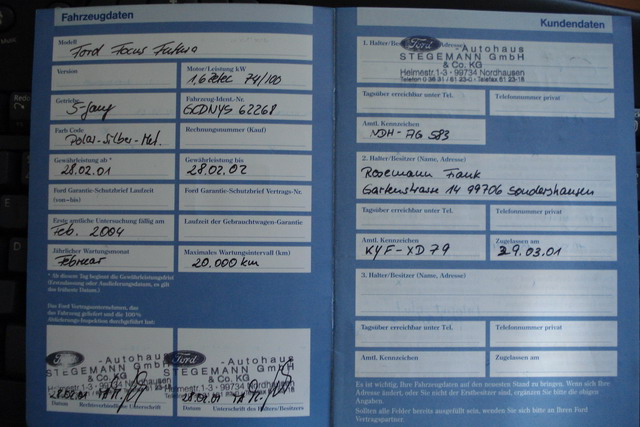 Fahrzeugdaten
Modell
Ford Focus Futura
Version
Motor/Leistung kW
1,6 Zetec 74/100
Getriebe
5-Gang
Fahrzeug-Ident.-Nr.
GCDNYS 62268
Farb Code
Polar-Silber-Met.
Rechnungsnummer (Kauf)
Gewährleistung ab *
28.02.01
Gewährleistung bis
28.02.02
Ford Garantie-Schutzbrief Laufzeit
(von–bis)
Ford Garantie-Schutzbrief Vertrags-Nr.
Erste amtliche Untersuchung fällig am
Feb. 2004
Laufzeit der Gebrauchtwagen-Garantie
Jährlicher Wartungsmonat
Februar
Maximales Wartungsintervall (km)
20.000 km
* Ab diesem Tag beginnt die Gewährleistungsfrist
(Erstzulassung oder Auslieferungsdatum, es gilt
das frühere Datum).
Das Ford Vertragsunternehmen, das
das Fahrzeug geliefert und die 100%
Ablieferungs-Inspektion durchgeführt hat:
Ford
-Autohaus
STEGEMANN GmbH
& Co. KG
Helmestr.1-3 · 99734 Nordhausen
28.02.01
Datum Rechtsverbindliche Unterschrift
Ford
-Autohaus
STEGEMANN GmbH
& Co. KG
Helmestr.1-3 · 99734 Nordhausen
28.02.01
Datum Unterschrift des Halters/Besitzers
Kundendaten
1. Halter/Besitzer (Name, Adresse)
Ford -Autohaus
STEGEMANN GmbH
& Co. KG
Helmestr.1-3 · 99734 Nordhausen
Telefon 0 36 31 / 61 23-0 · Telefax 61 23-18
Tagsüber erreichbar unter Tel.
Telefonnummer privat
Amtl. Kennzeichen
NDH-AG 583
2. Halter/Besitzer (Name, Adresse)
Rosemann Frank
Gartenstrasse 14 99706 Sondershausen
Tagsüber erreichbar unter Tel.
Telefonnummer privat
Amtl. Kennzeichen
KYF-XD 79
Zugelassen am
29.03.01
3. Halter/Besitzer (Name, Adresse)
Tagsüber erreichbar unter Tel.
Telefonnummer privat
Amtl. Kennzeichen
Zugelassen am
Es ist wichtig, Ihre Fahrzeugdaten auf den neuesten Stand zu bringen. Wenn sich Ihre
Adresse ändert, oder Sie nicht der Erstbesitzer sind, ergänzen Sie bitte die obigen
Angaben.
Sollten alle Felder bereits ausgefüllt sein, wenden Sie sich bitte an Ihren Ford
Vertragspartner.